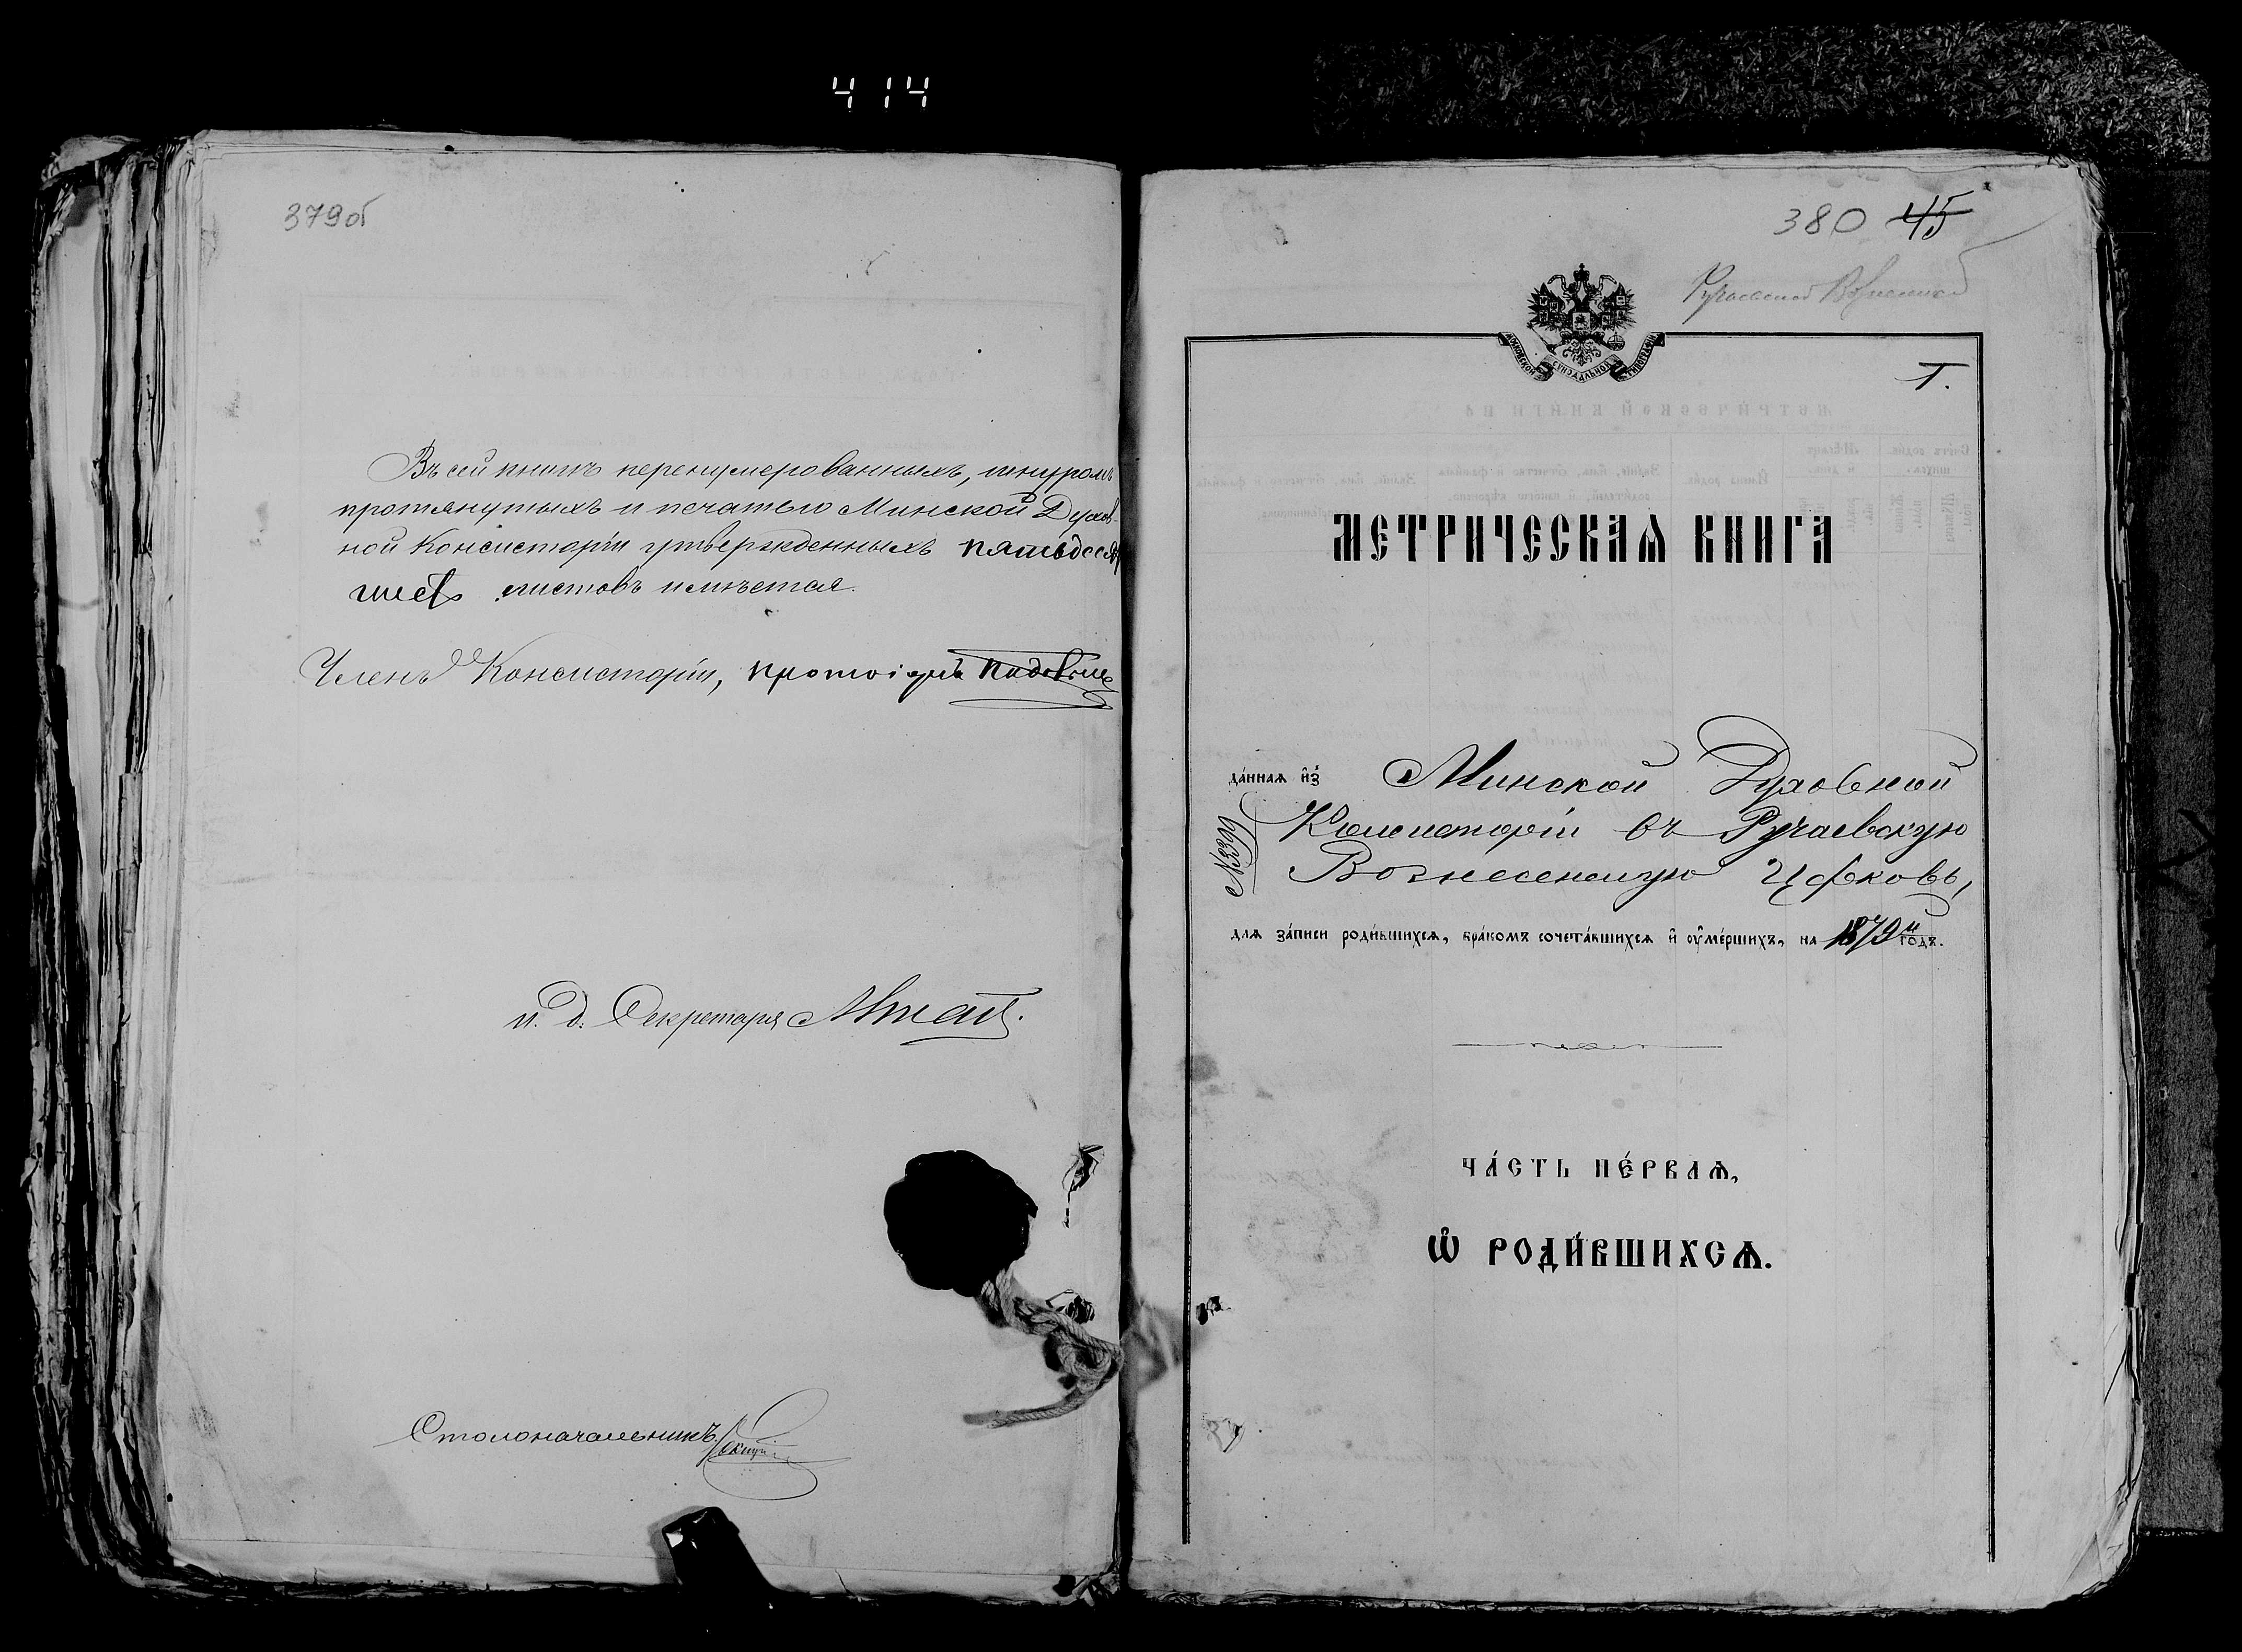 414
379об
Въ сей книгѣ перенумерованныхъ, шнуромъ
протянутыхъ и печатью Минской Духов-
ной Консисторіи утвержденныхъ пятьдесятъ
шесть листовъ имѣется.
Членъ Консисторіи, протоіерей
и. д. Секретаря
Столоначальникъ
380 45
I.
МЕТРИЧЕСКАѦ КНИГА
да́нная и҆з̾ Минской Духовной
№339
Консисторіи въ Ручаевскую
Вознесенскую Церковь,
для за́писи роди́вшихся, бра́комъ сочета́вшихся и҆ ᲂу҆ме́ршихъ, на 1879й годъ.
ЧА́СТЬ ПЕ́РВАѦ,
Ѡ҆ РОДИ́ВШИХСѦ.